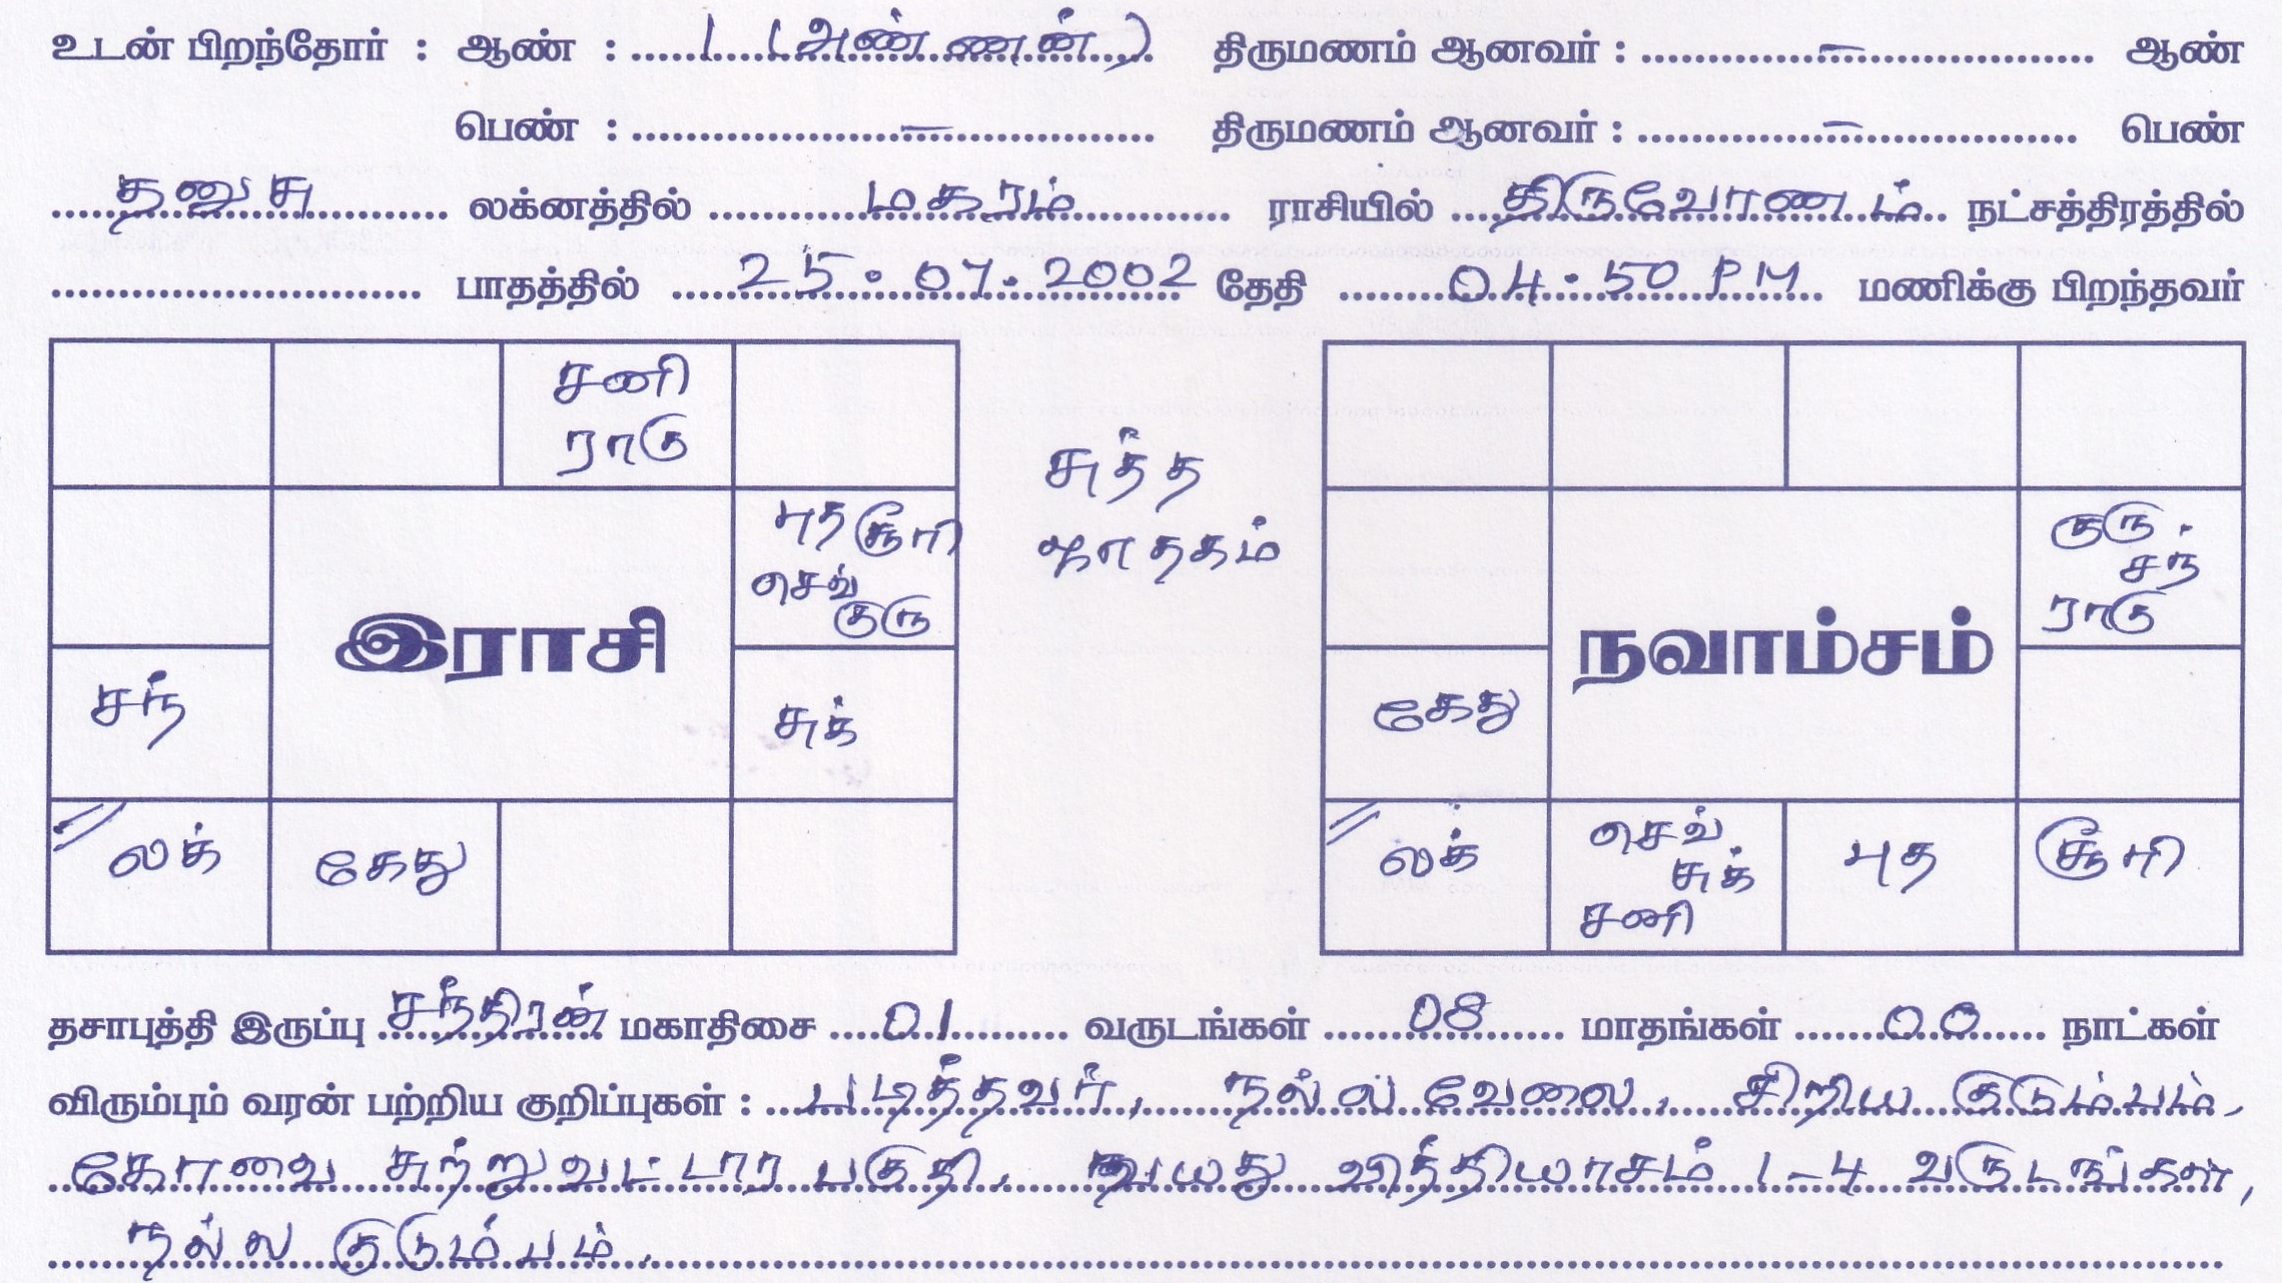 உடன் பிறந்தோர் : ஆண் : 1 (அண்ணன்) திருமணம் ஆனவர் : – ஆண்
பெண் : – திருமணம் ஆனவர் : – பெண்
தனுசு லக்னத்தில் மகரம் ராசியில் திருவோணம் நட்சத்திரத்தில்
பாதத்தில் 25.07.2002 தேதி 04.50 PM மணிக்கு பிறந்தவர்
சனி
ராகு
புத சூரி
செவ்
குரு
இராசி
சந்
சுக்
லக்
கேது
சுத்த
ஜாதகம்
குரு
சந்
ராகு
நவாம்சம்
கேது
லக்
செவ்
சுக்
சனி
புத
சூரி
தசாபுத்தி இருப்பு சந்திரன் மகாதிசை 01 வருடங்கள் 08 மாதங்கள் 00 நாட்கள்
விரும்பும் வரன் பற்றிய குறிப்புகள் : படித்தவர், நல்ல வேலை, சிறிய குடும்பம்,
கோவை சுற்றுவட்டார பகுதி, வயது வித்தியாசம் 1-4 வருடங்கள்,
நல்ல குடும்பம்.